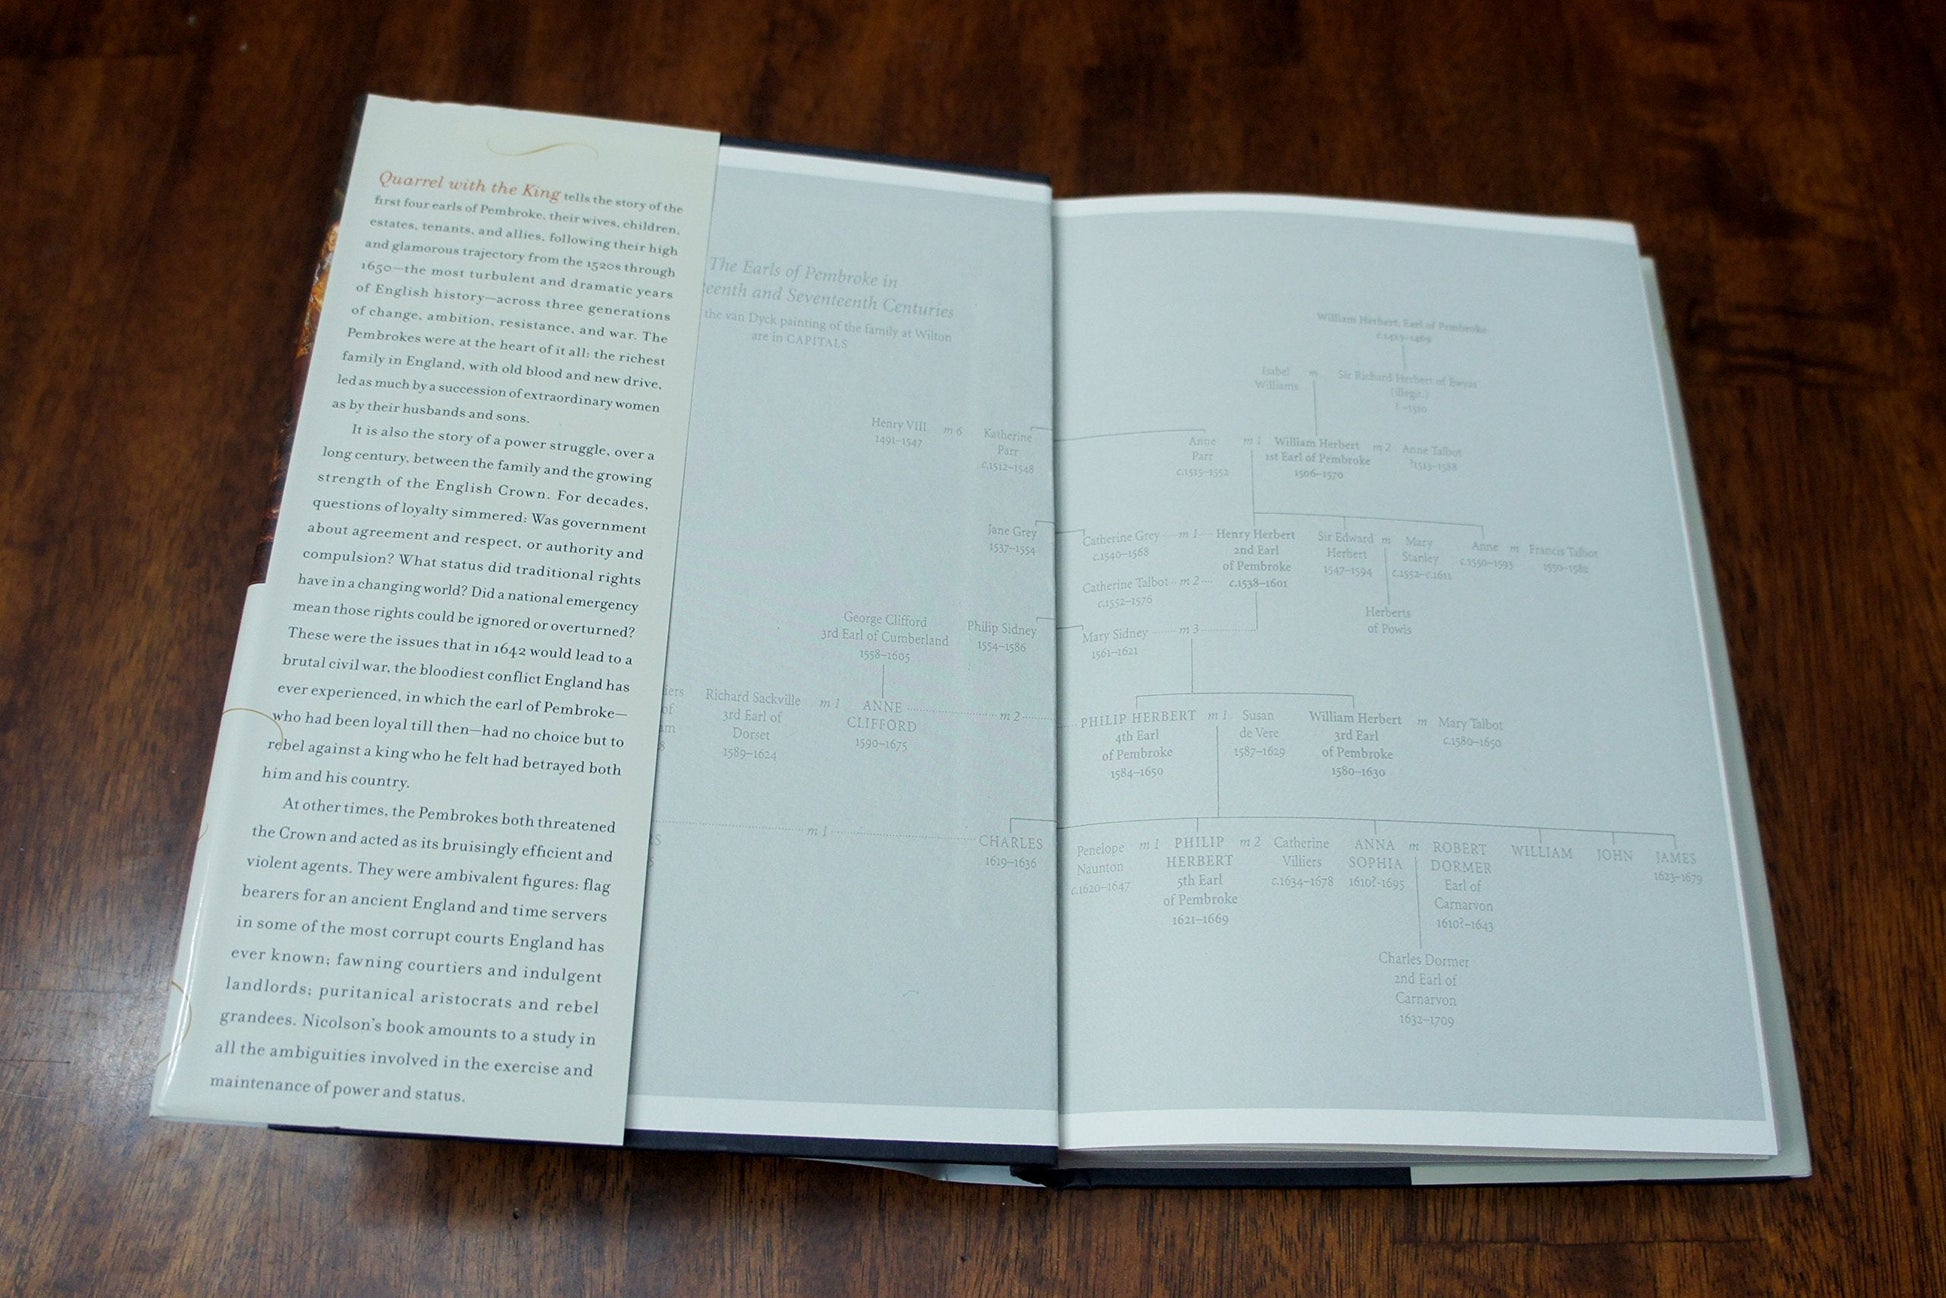 Quarrel with the King tells the story of the
first four earls of Pembroke, their wives, children,
estates, tenants, and allies, following their high
and glamorous trajectory from the 1520s through
1650—the most turbulent and dramatic years
of English history—across three generations
of change, ambition, resistance, and war. The
Pembrokes were at the heart of it all: the richest
family in England, with old blood and new drive,
led as much by a succession of extraordinary women
as by their husbands and sons.
It is also the story of a power struggle, over a
long century, between the family and the growing
strength of the English Crown. For decades,
questions of loyalty simmered: Was government
about agreement and respect, or authority and
compulsion? What status did traditional rights
have in a changing world? Did a national emergency
mean those rights could be ignored or overturned?
These were the issues that in 1642 would lead to a
brutal civil war, the bloodiest conflict England has
ever experienced, in which the earl of Pembroke—
who had been loyal till then—had no choice but to
rebel against a king who he felt had betrayed both
him and his country.
At other times, the Pembrokes both threatened
the Crown and acted as its bruisingly efficient and
violent agents. They were ambivalent figures: flag
bearers for an ancient England and time servers
in some of the most corrupt courts England has
ever known; fawning courtiers and indulgent
landlords; puritanical aristocrats and rebel
grandees. Nicolson's book amounts to a study in
all the ambiguities involved in the exercise and
maintenance of power and status.
The Earls of Pembroke in
eenth and Seventeenth Centuries
the van Dyck painting of the family at Wilton
are in CAPITALS
William Herbert, Earl of Pembroke
Isabel m Sir Richard Herbert of Ewyas
Williams (illegit.)
? –1510
Henry VIII m 6 Katherine Anne m 1 William Herbert m 2 Anne Talbot
1491–1547 Parr Parr 1st Earl of Pembroke ?1515–1588
c.1512–1548 c.1515–1552 1506–1570
Jane Grey Catherine Grey m 1 Henry Herbert Sir Edward m Mary Anne m Francis Talbot
1537–1554 c.1540–1568 2nd Earl Herbert Stanley c.1550–1593 1550–1582
of Pembroke 1547–1594 c.1552–c.1611
Catherine Talbot m 2 c.1538–1601
c.1552–1576
Herberts
of Powis
George Clifford Philip Sidney Mary Sidney m 3
3rd Earl of Cumberland 1554–1586 1561–1621
1558–1605
iers Richard Sackville m 1 ANNE m 2 PHILIP HERBERT m 1 Susan William Herbert m Mary Talbot
of 3rd Earl of CLIFFORD 4th Earl de Vere 3rd Earl c.1580–1650
am Dorset 1590–1675 of Pembroke 1587–1629 of Pembroke
8 1589–1624 1584–1650 1580–1630
RS m 1 CHARLES Penelope m 1 PHILIP m 2 Catherine ANNA m ROBERT WILLIAM JOHN JAMES
S 1619–1636 Naunton HERBERT Villiers SOPHIA DORMER 1623–1679
c.1620–1647 5th Earl c.1634–1678 1610?–1695 Earl of
of Pembroke Carnarvon
1621–1669 1610?–1643
Charles Dormer
2nd Earl of
Carnarvon
1632–1709